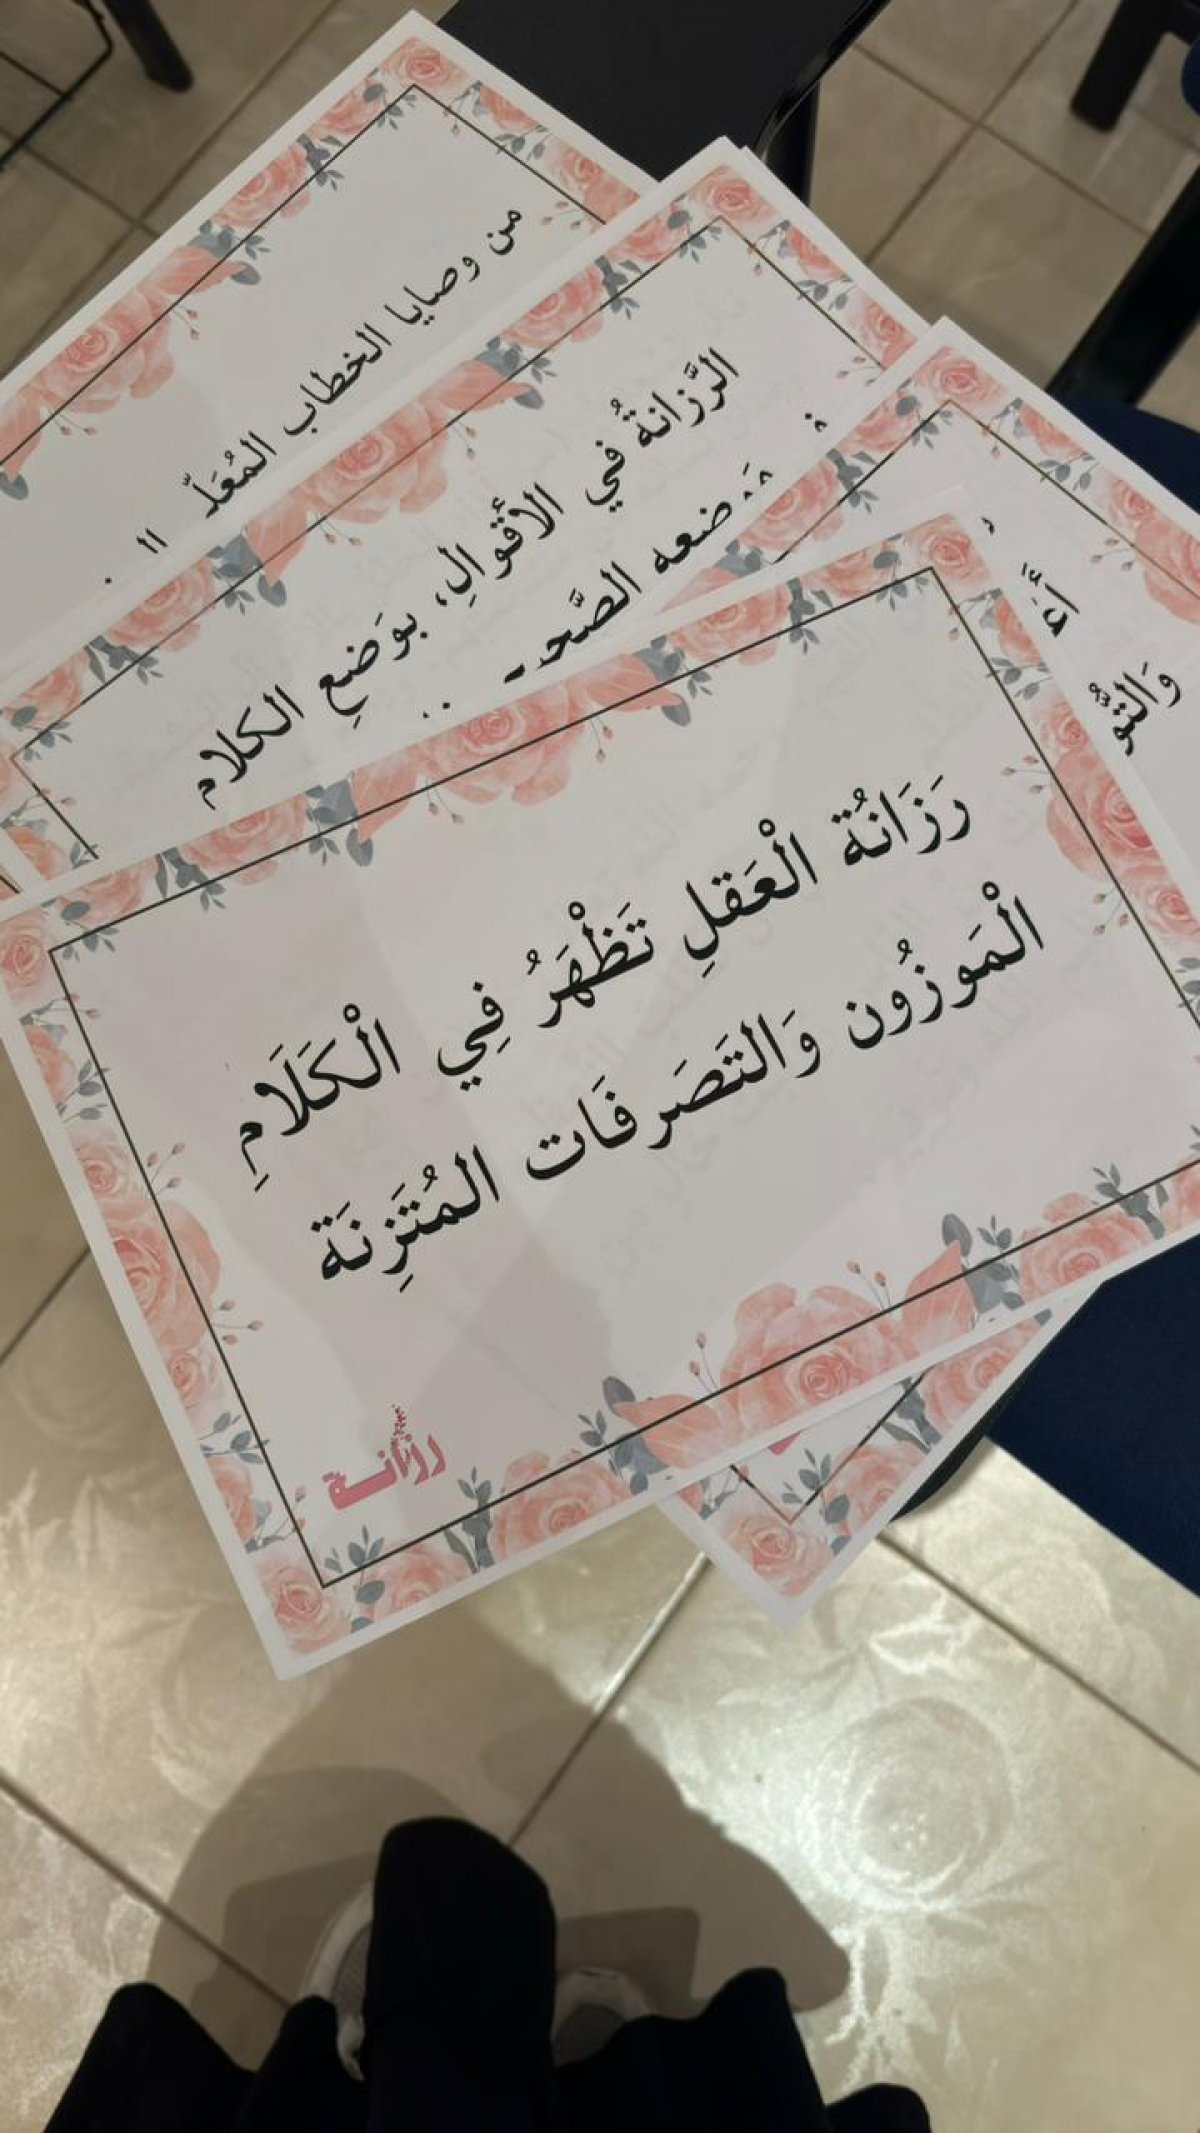 من وصايا الخطاب المُعَلّ
الرَّزانةُ في الأقوالِ، بوَضعِ الكلام
رَزَانُة الْعَقلِ تَظْهَرُ فِي الْكَلَامِ
الْمَوزُون وَالتَصَرفَات المُتَزِنَة
رزانة